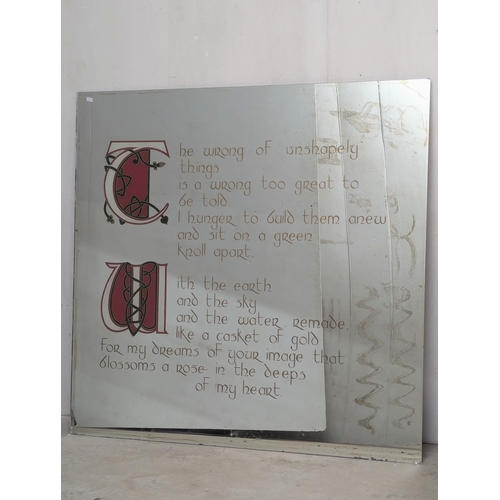 The wrong of unshapely
things
is a wrong too great to
be told.
I hunger to build them anew
and sit on a green
knoll apart.
With the earth
and the sky
and the water remade,
like a casket of gold
For my dreams of your image that
blossoms a rose in the deeps
of my heart.